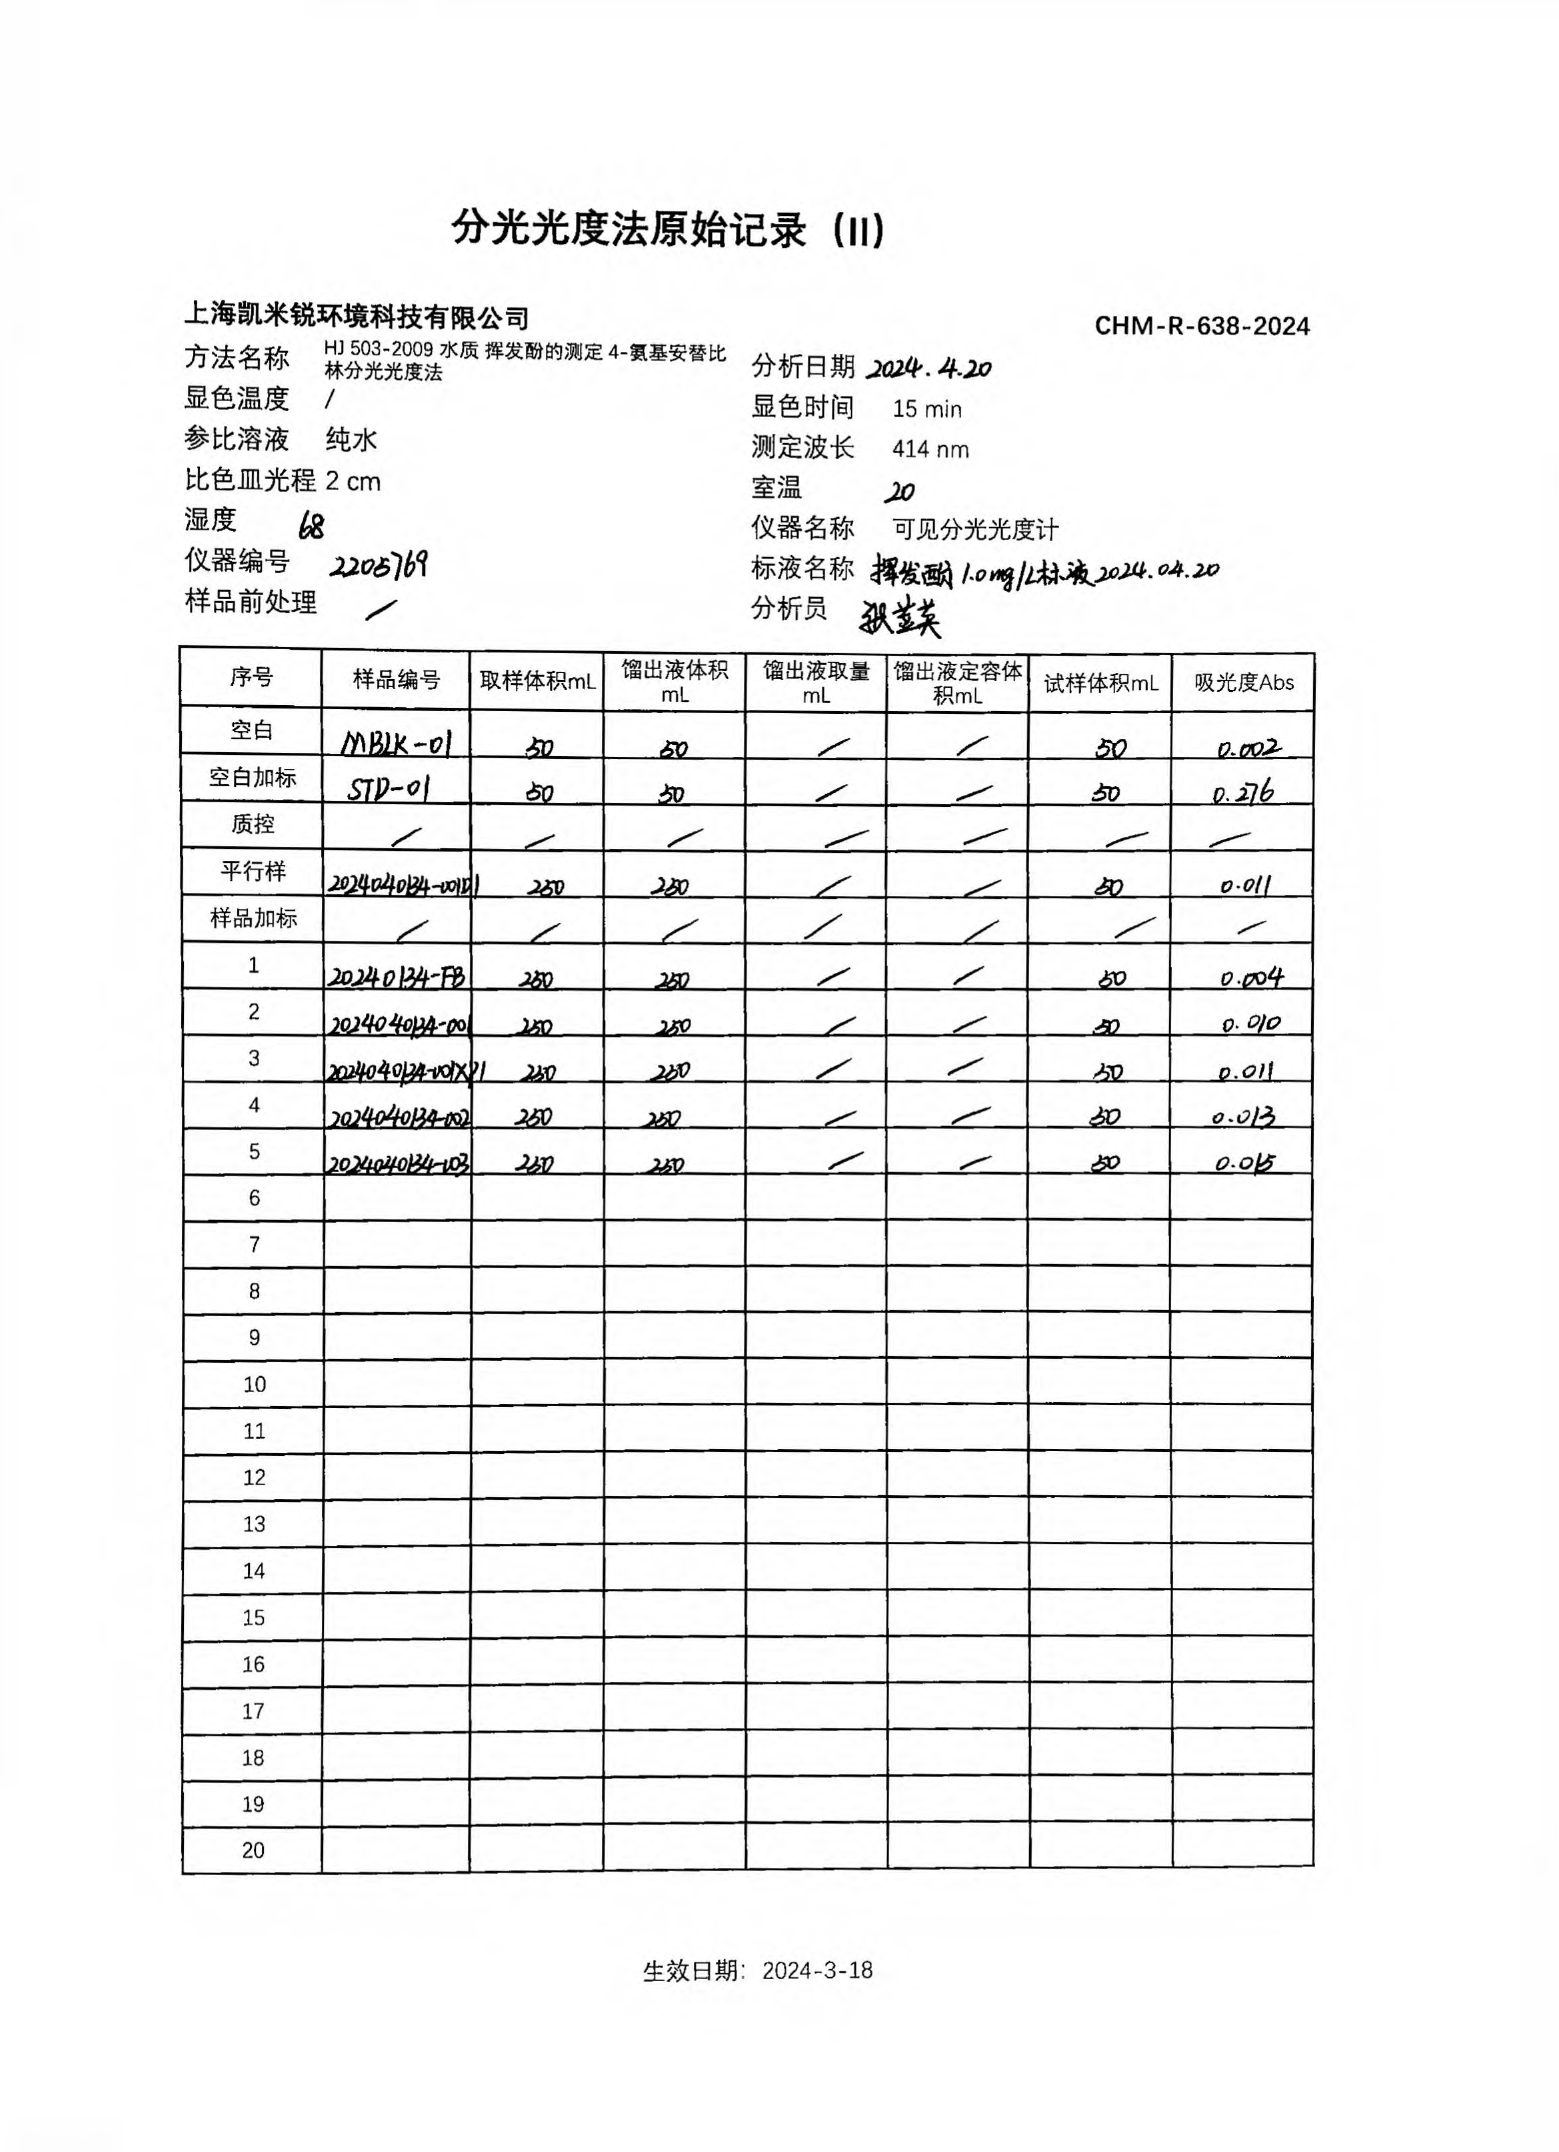 分光光度法原始记录（II）
上海凯米锐环境科技有限公司 CHM-R-638-2024
方法名称 HJ 503-2009 水质 挥发酚的测定 4-氨基安替比林分光光度法 分析日期 2024.4.20
显色温度 / 显色时间 15 min
参比溶液 纯水 测定波长 414 nm
比色皿光程 2 cm 室温 20
湿度 68 仪器名称 可见分光光度计
仪器编号 2205769 标液名称 挥发酚1.0mg/L标液2024.04.20
样品前处理 / 分析员 张英
序号 样品编号 取样体积mL 馏出液体积mL 馏出液取量mL 馏出液定容体积mL 试样体积mL 吸光度Abs
空白 MBLK-01 50 50 / / 50 0.002
空白加标 STD-01 50 50 / / 50 0.276
质控 / / / / / / /
平行样 2024040134-001D1 250 250 / / 50 0.011
样品加标 / / / / / / /
1 20240134-FB 250 250 / / 50 0.004
2 2024040134-001 250 250 / / 50 0.010
3 2024040134-001XP1 250 250 / / 50 0.011
4 2024040134-002 250 250 / / 50 0.013
5 2024040134-003 250 250 / / 50 0.015
6
7
8
9
10
11
12
13
14
15
16
17
18
19
20
生效日期：2024-3-18